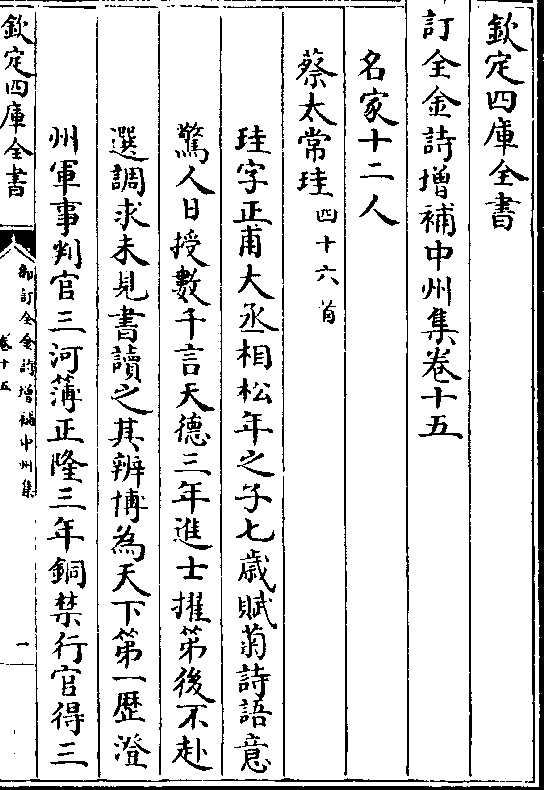 欽定四庫全書
訂全金詩增補中州集卷十五
名家十二人
蔡太常珪四十六首
珪字正甫大丞相松年之子七歲賦菊詩語意
驚人日授數千言天德三年進士擢第後不赴
選調求未見書讀之其辨博為天下第一歷澄
州軍事判官三河簿正隆三年銅禁行官得三
欽定四庫全書
御訂全金詩增補中州集
卷十五
一